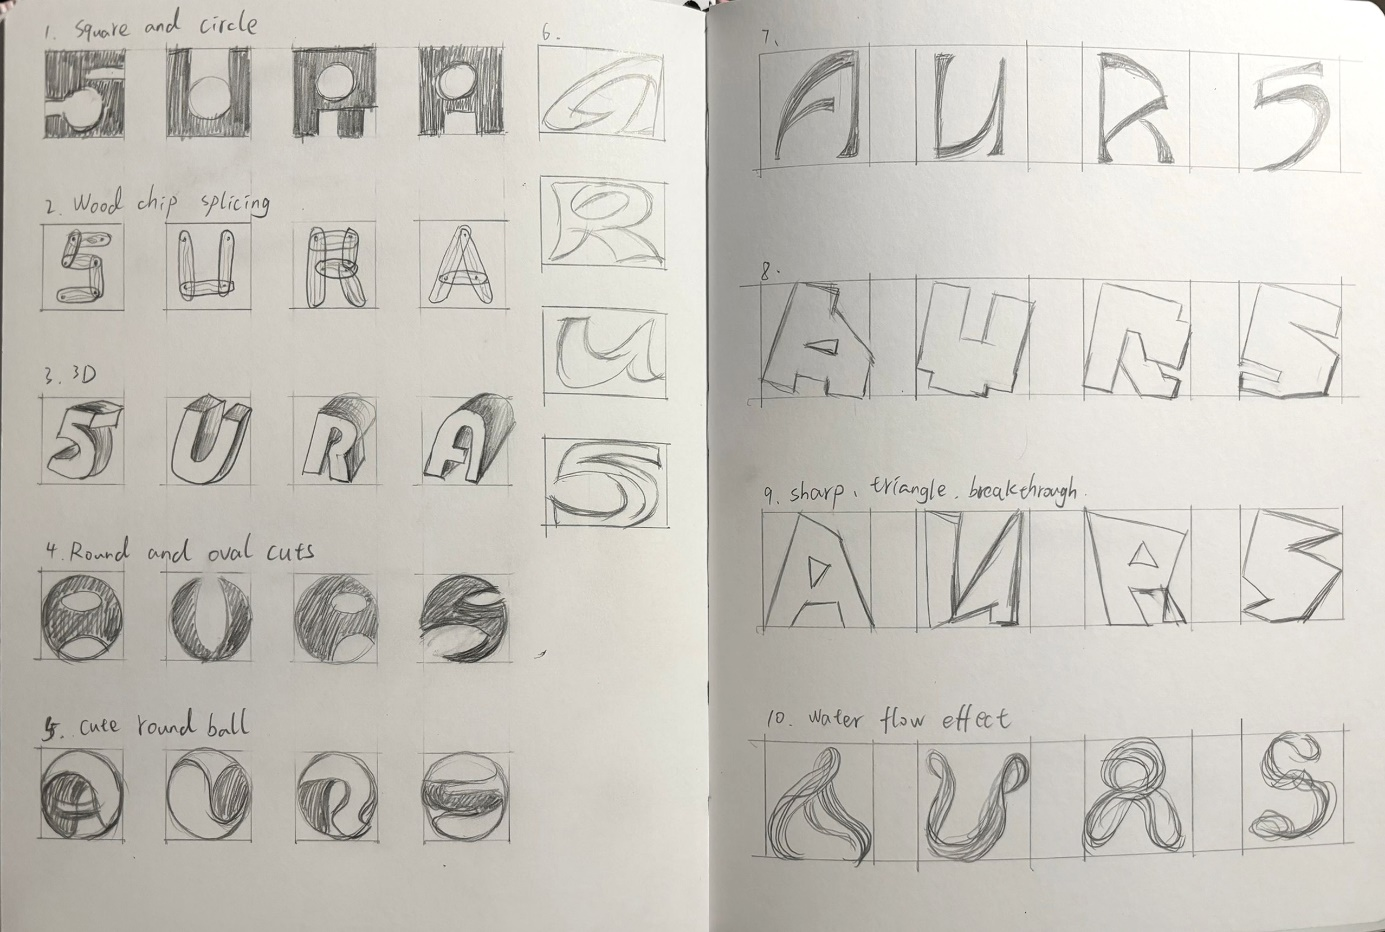 1. Square and circle
S U R A
2. Wood chip splicing
S U R A
3. 3D
S U R A
4. Round and oval cuts
A U R S
5. cute round ball
A U R S
6.
a
R
u
S
7.
A U R S
8.
A U R S
9. sharp、triangle、breakthrough.
A U R S
10. Water flow effect
A U R S